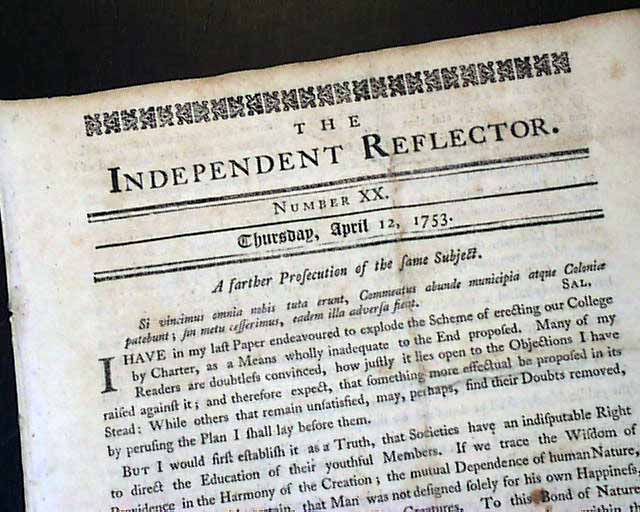 THE
INDEPENDENT REFLECTOR.
NUMBER XX.
Thursday, April 12, 1753.
A farther Prosecution of the same Subject.
Si vincimus omnia nobis tuta erunt, Commeatus abunde municipia atque Coloniæ
patebunt; sin metu cesserimus, eadem illa adversa fient. SAL.
I HAVE in my last Paper endeavoured to explode the Scheme of erecting our College
by Charter, as a Means wholly inadequate to the End proposed. Many of my
Readers are doubtless convinced, how justly it lies open to the Objections I have
raised against it; and therefore expect, that something more effectual be proposed in its
Stead: While others that remain unsatisfied, may, perhaps, find their Doubts removed,
by perusing the Plan I shall lay before them.
BUT I would first establish it as a Truth, that Societies have an indisputable Right
to direct the Education of their youthful Members. If we trace the Wisdom of
Providence in the Harmony of the Creation; the mutual Dependence of human Nature,
that Man was not designed solely for his own Happiness,
Creatures. To this Bond of Nature
within the